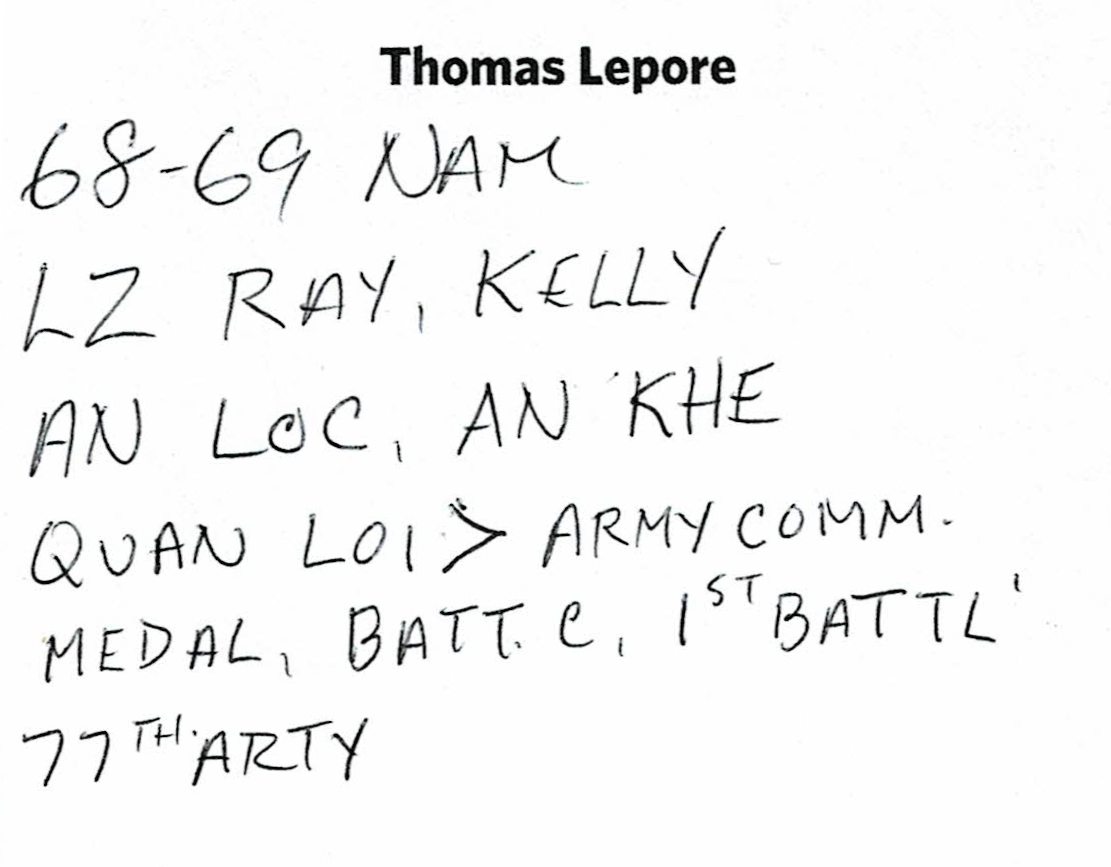 Thomas Lepore
68-69 NAM
LZ RAY, KELLY
AN LOC, AN KHE
QUAN LOI > ARMY COMM.
MEDAL, BATT. C, 1ST BATTL'
77TH ARTY